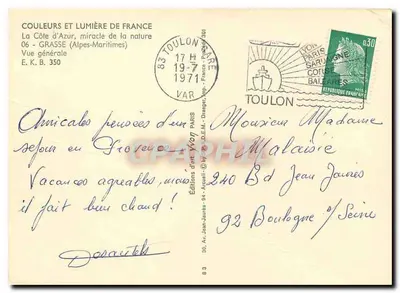 COULEURS ET LUMIÈRE DE FRANCE
La Côte d'Azur, miracle de la nature
06 - GRASSE (Alpes-Maritimes)
Vue générale
E. K. B. 350
83 TOULON GARE
17 H
19-7
1971
VAR
LYON
PARIS
SARDAIGNE
CORSE
BALEARES
TOULON
0,30
REPUBLIQUE FRANÇAISE
Amicales pensées d'un
séjour en Provence
Vacances agréables, mais
il fait bien chaud !
Desautels
Editions d'art YVON PARIS
30, Av. Jean-Jaurès - 94 - Arcueil
Monsieur Madame
Malaisie
240 Bd Jean Jaurès
92 Boulogne s/Seine